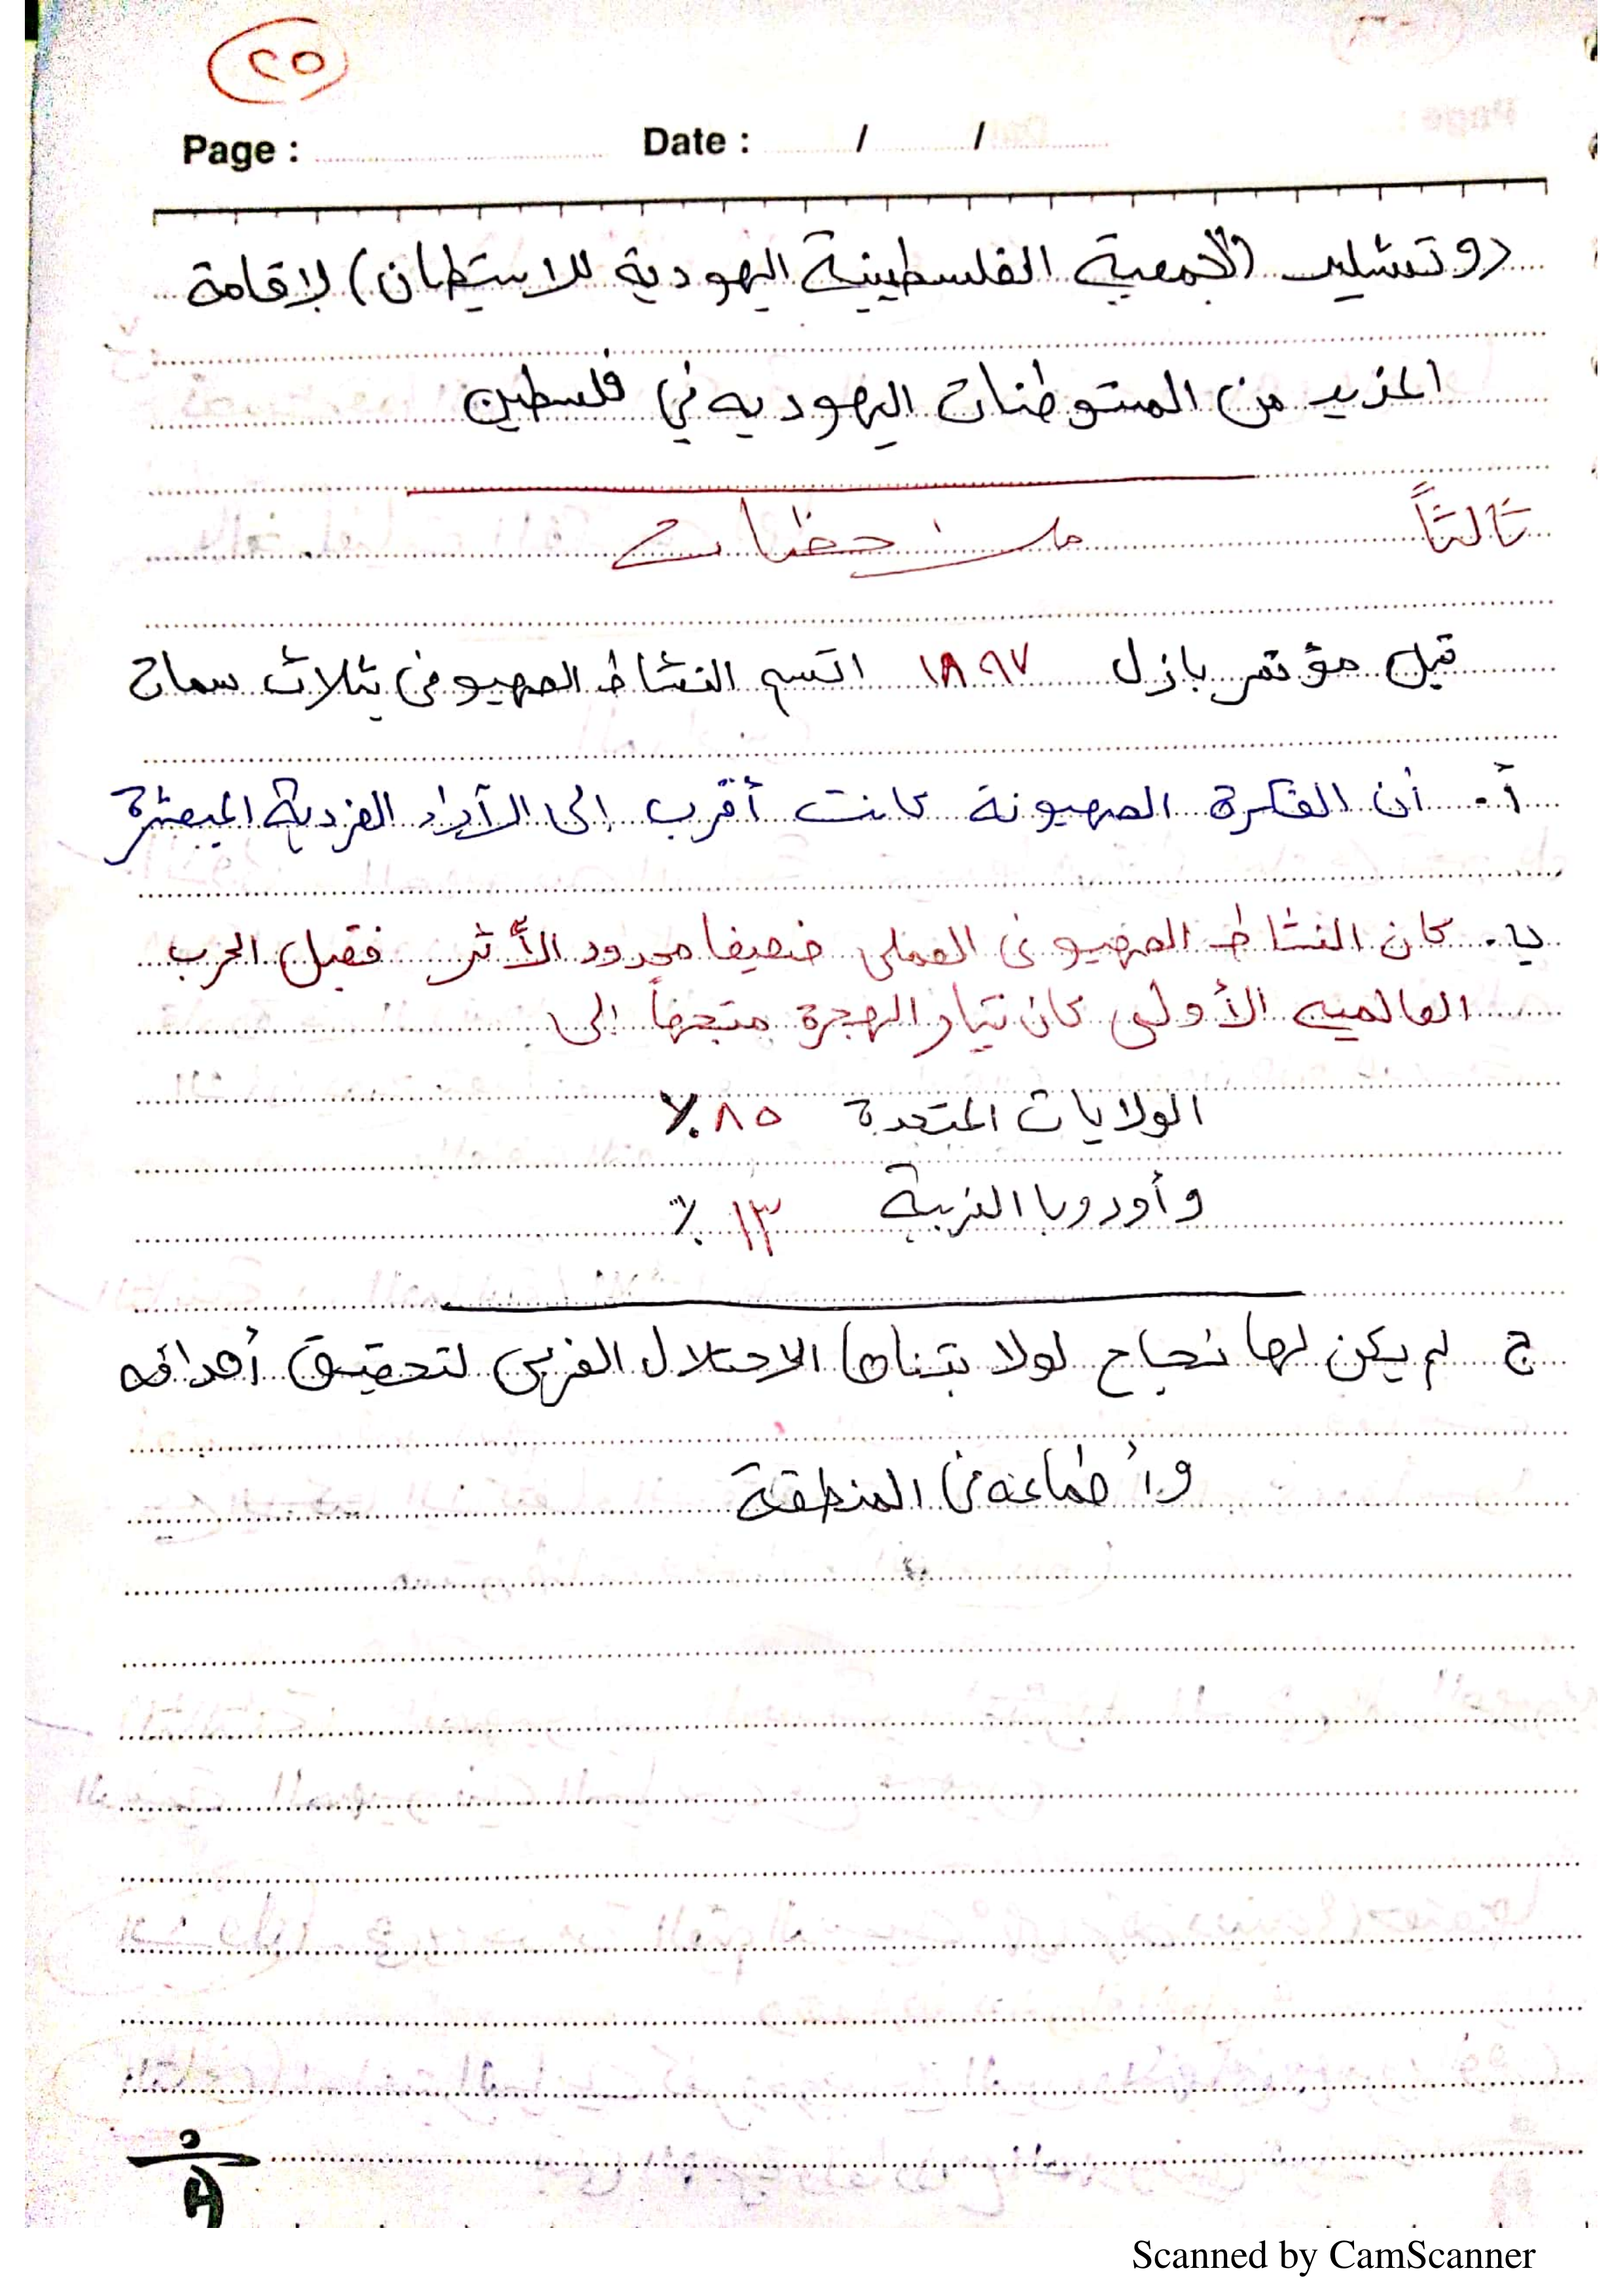 ٢٥
Page : Date : / /
روتشليد (الجمعية الفلسطينية اليهودية للاستيطان) لإقامة
المزيد من المستوطنات اليهوديه في فلسطين
ثالثاً ملاحظات
قبل مؤتمر بازل ١٨٩٧ اتسم النشاط الصهيوفى بثلاث سمات
أ. أن الفكرة الصهيونة كانت أقرب إلى الآراد الفردية المبعثرة
ب. كان النشاط الصهيونى العملى ضعيفا محدود الأثر فقبل الحرب
العالميه الأولى كان تيار الهجرة متجهاً إلى
الولايات المتحدة ٨٥٪
وأوروبا الغربية ١٣٪
ج لم يكن لها نجاح لولا تبناها الاحتلال الغربى لتحقيق أهدافه
وأطماعه فى المنطقة
Scanned by CamScanner